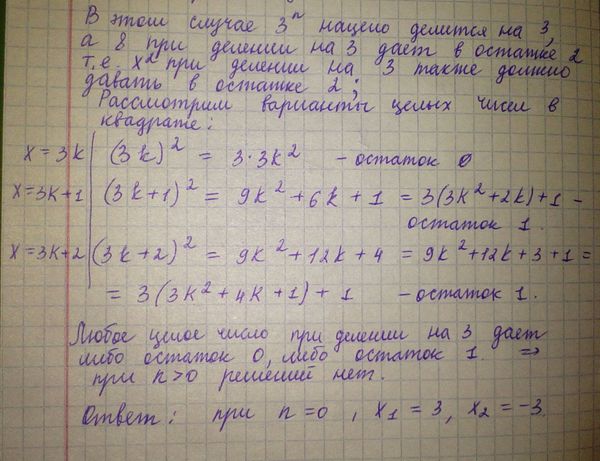 В этом случае 3^n нацело делится на 3,
а 8 при делении на 3 дает в остатке 2
т.е. x^2 при делении на 3 также должно
давать в остатке 2;
Рассмотрим варианты целых чисел в
квадрате:
x = 3k | (3k)^2 = 3·3k^2 - остаток 0
x = 3k+1 | (3k+1)^2 = 9k^2 + 6k + 1 = 3(3k^2+2k)+1 -
остаток 1.
x = 3k+2 | (3k+2)^2 = 9k^2 + 12k + 4 = 9k^2+12k+3+1 =
= 3(3k^2 + 4k + 1) + 1 - остаток 1.
Любое целое число при делении на 3 дает
либо остаток 0, либо остаток 1. ⇒
при n>0 решений нет.
Ответ: при n=0, x1 = 3, x2 = -3.